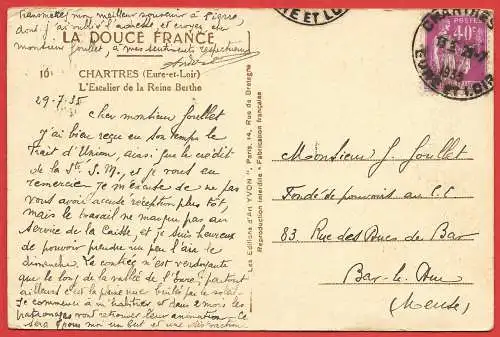 Transmettez mon meilleur souvenir à
dont j'ai oublié l'adresse et croyez
monsieur Joullet, à mes sentiments respectueux
LA DOUCE FRANCE
10 CHARTRES (Eure-et-Loir)
L'Escalier de la Reine Berthe
29-7-35
Cher monsieur Joullet
j'ai bien reçu en son temps le
Trait d'Union, ainsi que le crédit
de la Sté S. M., et je vous en
remercie. Je m'excuse de ne pas
vous avoir accusé réception plus tôt,
mais le travail ne manque pas au
Service de la Caisse, et je suis heureux
de pouvoir prendre un peu l'air le
dimanche. La contrée n'est verdoyante
que le long de la vallée de l'Eure, partout
ailleurs c'est la plaine nue brûlée par le soleil.
Je commence à m'habituer et dans 2 mois les
patronages vont retrouver leur animation. Ce
sera pour moi un but et une distraction
Les Editions d'Art "YVON", Paris, 14, Rue de Bretagne
Reproduction interdite - Fabrication française
ET LOIR
CHARTRES
EURE ET LOIR
1935
POSTES
40c
Monsieur J. Joullet
Fondé de pouvoirs au CC
83, Rue des Ducs de Bar
Bar-le-Duc
(Meuse)